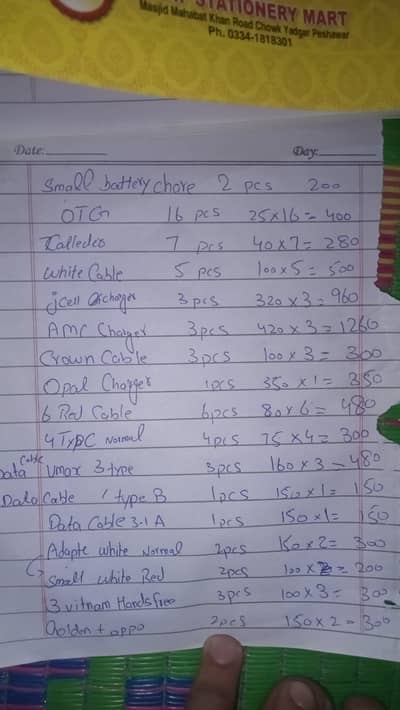 STATIONERY MART
Masjid Mahabat Khan Road Chowk Yadgar Peshawar
Ph. 0334-1818301
Date: Day:
Small battery chore 2 pcs 200
OTG 16 pcs 25x16= 400
7 pcs 40x7= 280
White Cable 5 pcs 100x5= 500
jcell Charger 3pcs 320x3= 960
AMC Charger 3pcs 420x3=1260
Crown Cable 3pcs 100x3= 300
Opal Charger 1pcs 350x1= 350
6 Red Cable 6pcs 80x6= 480
4 TypC Normal 4pcs 75x4= 300
Data Cable Vmax 3 type 3pcs 160x3-480
Data Cable 1 type B 1pcs 150x1= 150
Data Cable 3.1 A 1pcs 150x1= 150
Adapte white Normal 2pcs 150x2= 300
Small white Red 2pcs 100x2=200
3 vitnam Handsfree 3pcs 100x3= 300
Golden + oppo 2pcs 150x2-300